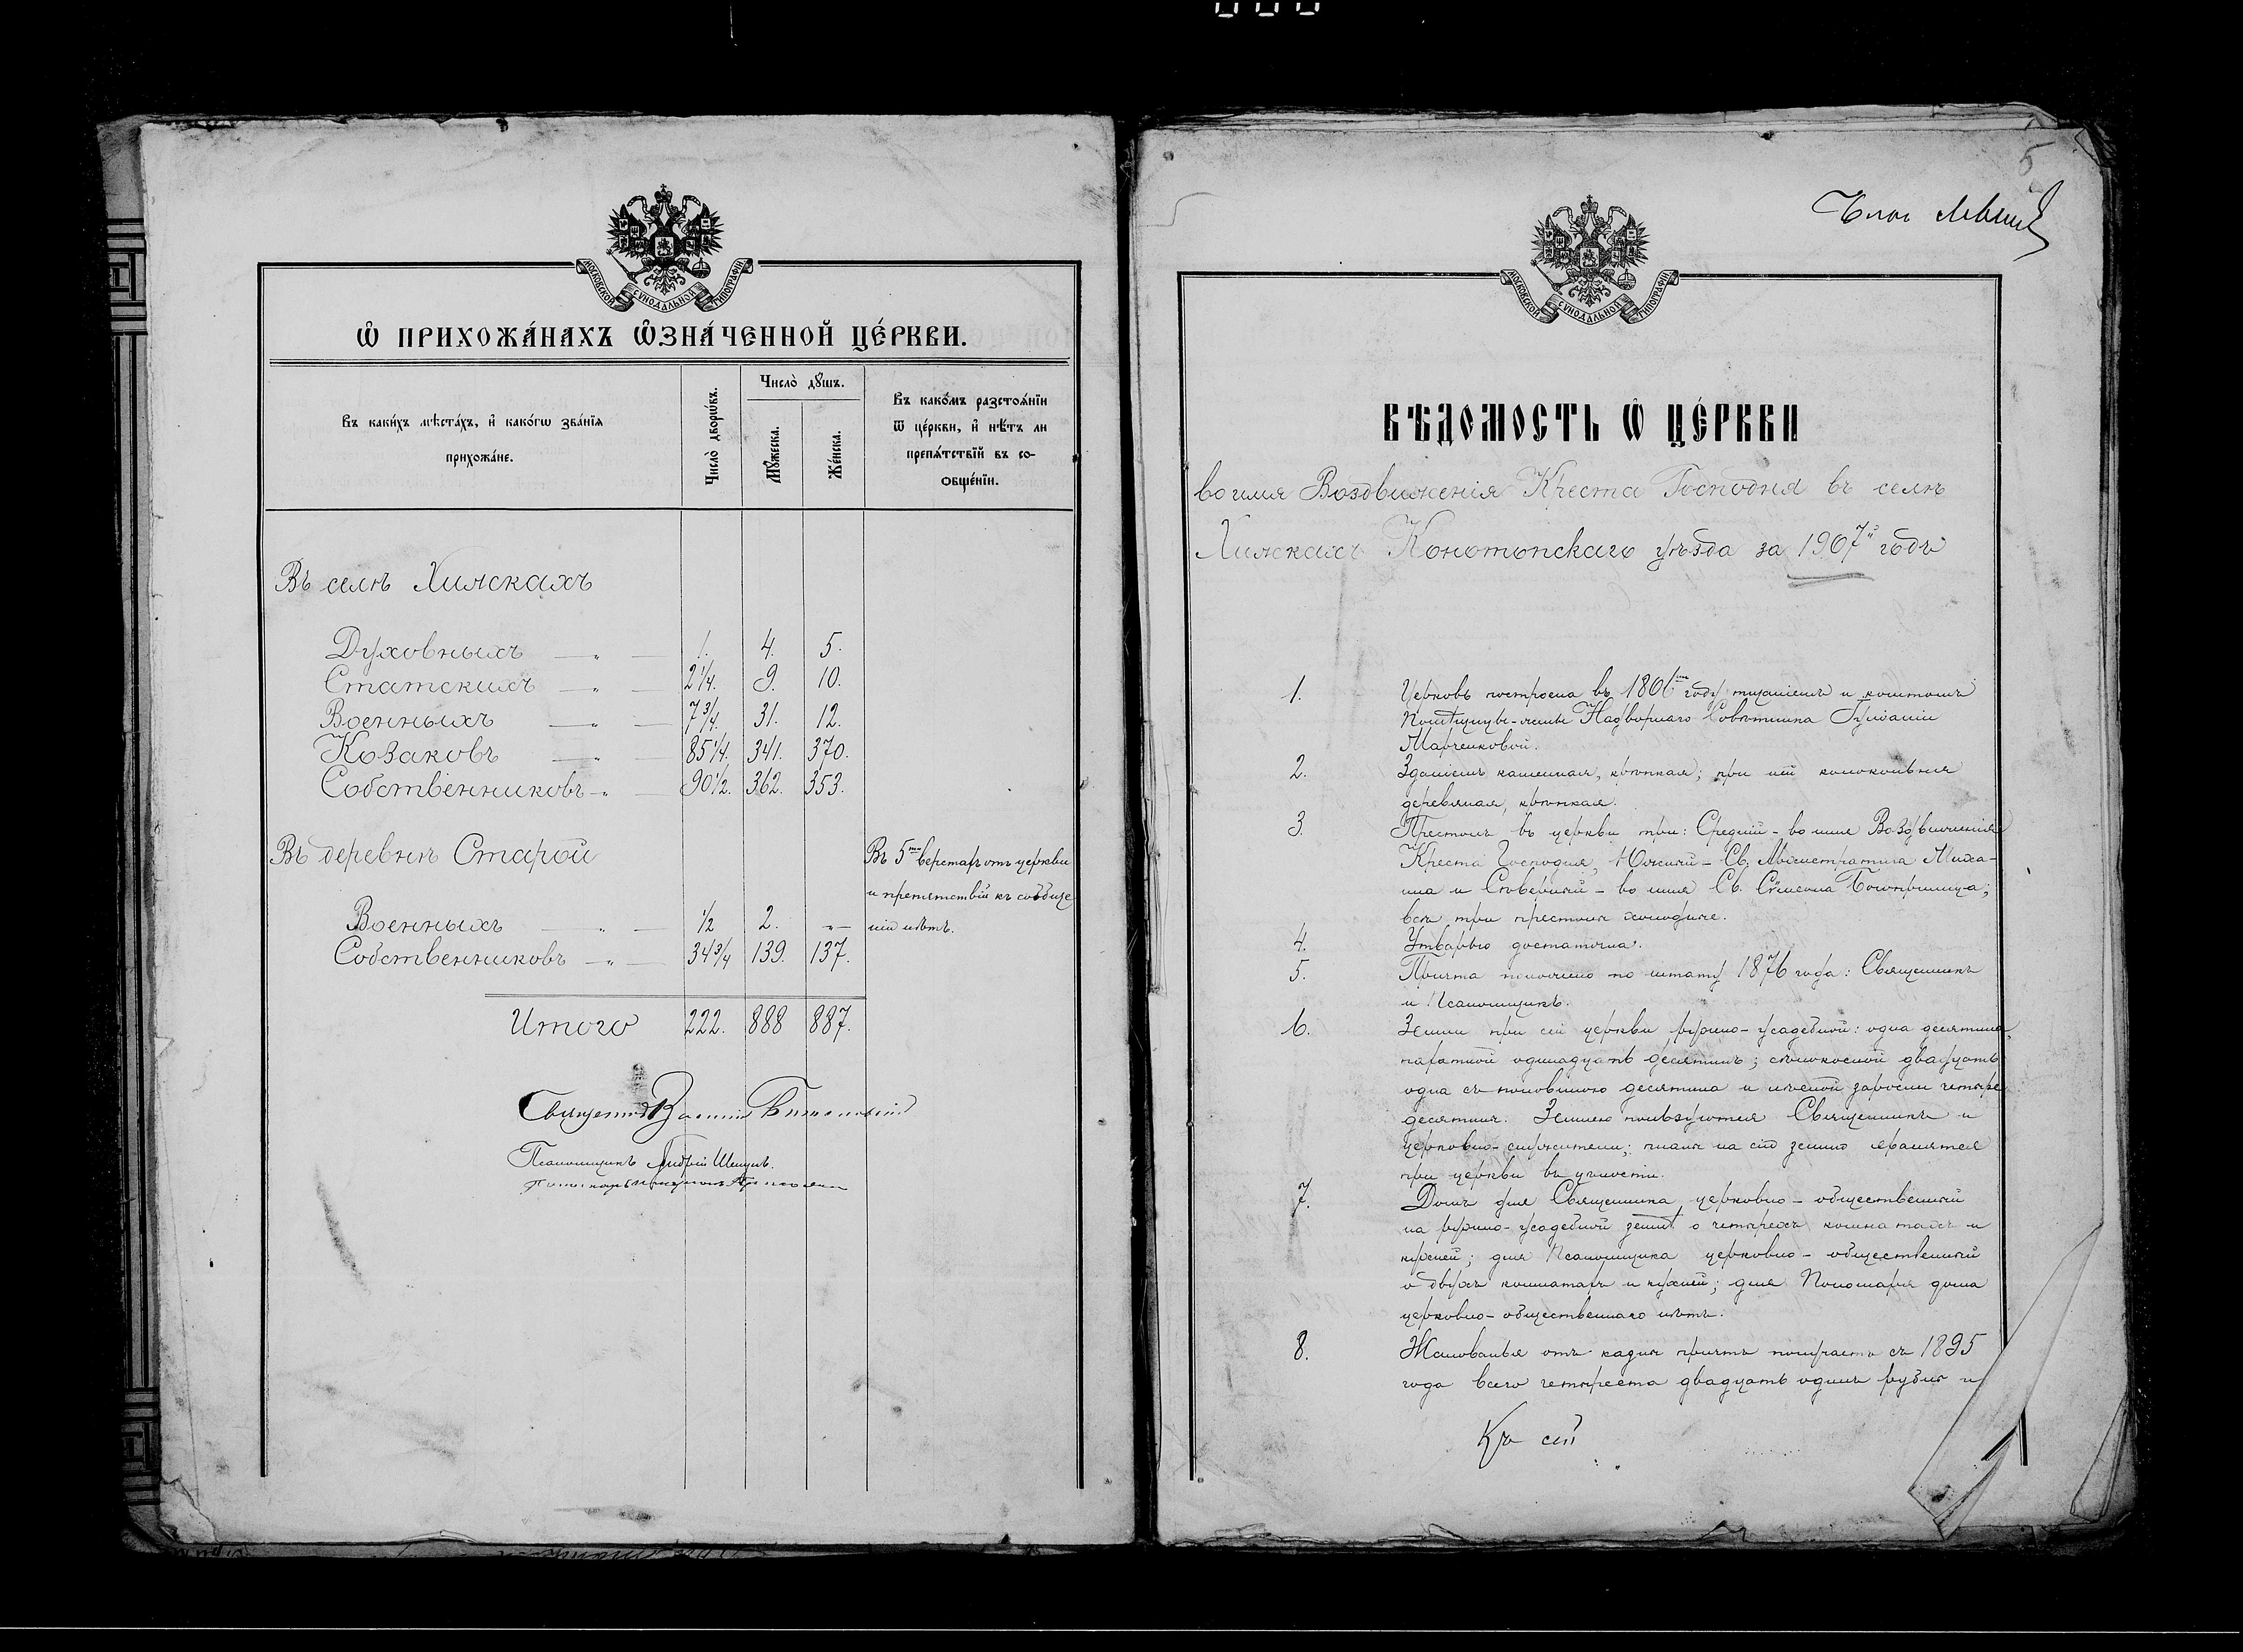 МОСКОВСКОЙ СѴНОДАЛЬНОЙ ТИПОГРАФІИ
Ѽ ПРИХОЖА́НАХЪ Ѿ́ЗНА́ЧЕННОЙ ЦЕ́РКВИ.
Въ каки́хъ мѣста́хъ, и҆ како́гѡ зва́нїѧ
прихожа́не.
Число̀ дворѡ́въ.
Число̀ дꙋ́шъ.
Мꙋ́жеска.
Же́нска.
Въ како́мъ разстоѧ́нїи
ѿ це́ркви, и҆ нѣ́тъ ли
препѧ́тствїй въ со-
ѻбще́нїи.
Въ селѣ Хижкахъ
Духовныхъ — „ — 1. 4. 5.
Статскихъ — „ — 2 1/4. 9. 10.
Военныхъ — „ — 7 3/4. 31. 12.
Козаковъ — „ — 85 1/4. 341. 370.
Собственниковъ — „ — 90 1/2. 362. 353.
Въ деревнѣ Старой
Въ 5ти верстахъ отъ церкви
и препятствій къ сообще
ніи нѣтъ.
Военныхъ — „ — 1/2 2. „—
Собственниковъ — „ — 34 3/4 139. 137.
Итого 222. 888 887.
Священникъ
Псаломщикъ Андрей
5
МОСКОВСКОЙ СѴНОДАЛЬНОЙ ТИПОГРАФІИ
ВѢДОМОСТЬ Ѽ ЦЕ́РКВИ
во имя Воздвиженія Креста Господня въ селѣ
Хижкахъ Конотопскаго уѣзда за 1907й годъ
1. Церковь построена въ 1806мъ году тщаніемъ и коштомъ
Надворнаго Совѣтника Іуліаніи
Марченковой.
2. Зданіемъ каменная, крѣпкая; при ней колокольня
деревяная, крѣпкая.
3. Престолъ въ церкви три: Средній – во имя Воздвиженія
Креста Господня, Южный – Св. Архистратига Миха-
ила и Сѣверный – во имя Св. Сѵмеона Богопріимца;
всѣ три престола холодные.
4. Утварью достаточна.
5. Причта положено по штату 1876 года: Священникъ
и Псаломщикъ.
6. Земли при сей церкви усадебной: одна десятина,
пахатной одинадцать десятинъ; сѣнокосной двадцать
одна съ половиною десятина и лѣсной заросли четыре
десятины. Землею пользуются Священникъ и
церковно-служители; планъ на сію землю хранятся
при церкви въ цѣлости.
7. Домъ для Священника церковно – общественный
на усадебной землѣ о четырехъ комнатахъ и
кухней; для Псаломщика церковно – общественный
о двухъ комнатахъ и кухней; для Пономаря дома
церковно – общественнаго нѣтъ.
8. Жалованья отъ казны причтъ получаетъ съ 1895
года всего четыреста двадцать одинъ рубль и
Къ сей